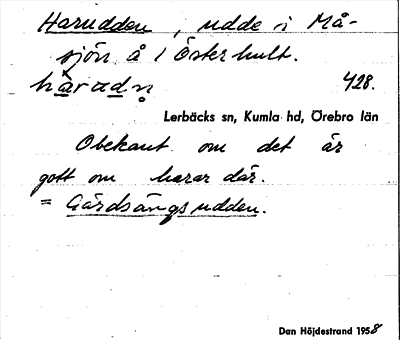 Harudden, udde i Må-
sjön å 1 Österhult.
hàrad̲n̥ 428.
Lerbäcks sn, Kumla hd, Örebro län
Obekant om det är
gott om harar där.
= Gärdsängsudden.
Dan Höjdestrand 1958